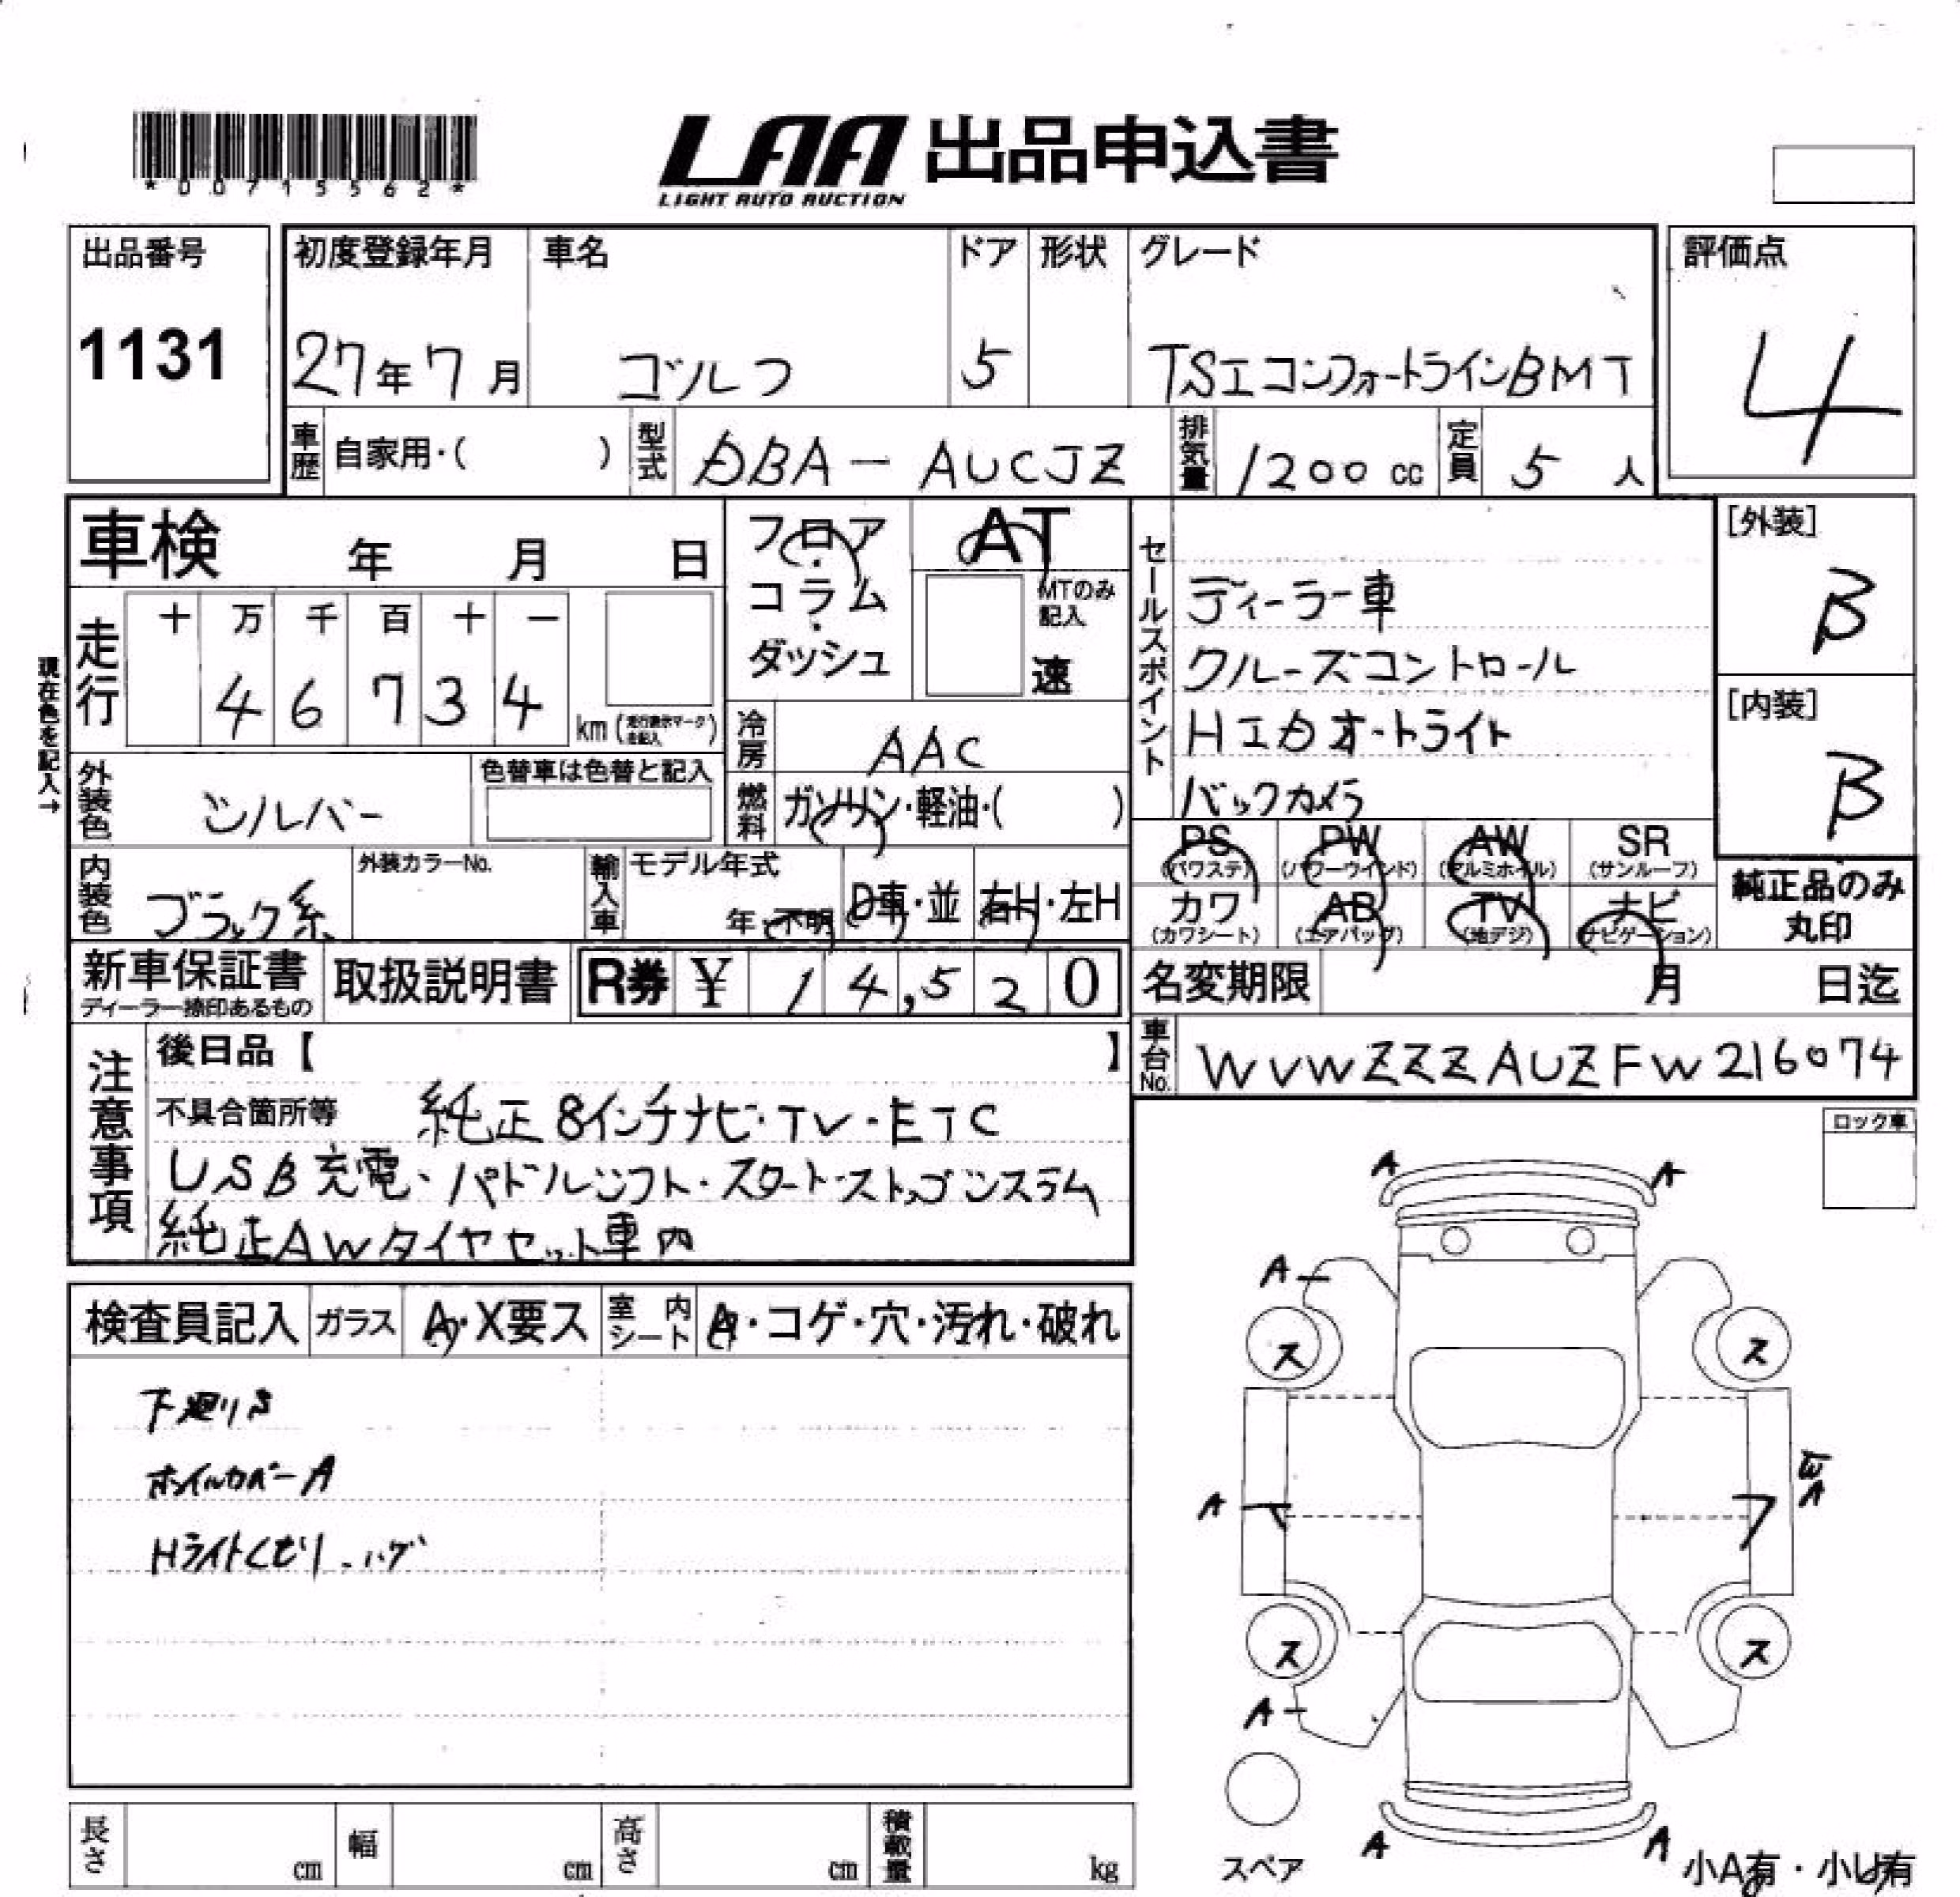 *00715562*
LAA 出品申込書
LIGHT AUTO AUCTION
出品番号
1131
初度登録年月 車名 ドア 形状 グレード
27年7月 ゴルフ 5 TSIコンフォートラインBMT
評価点
4
車歴 自家用・( ) 型式 DBA-AUCJZ 排気量 1200 cc 定員 5 人
車検 年 月 日
フロア・コラム・ダッシュ
AT
MTのみ記入
速
現在色を記入→
走行
十 万 千 百 十 一
4 6 7 3 4 km
冷房 AAC
燃料 ガソリン・軽油・( )
外装色 シルバー
色替車は色替と記入
内装色 ブラック系
外装カラーNo.
輸入車 モデル年式
年・不明 D車・並 右H・左H
セールスポイント
ディーラー車
クルーズコントロール
HIDオートライト
バックカメラ
[外装]
B
[内装]
B
PS (パワステ) PW (パワーウインド) AW (アルミホイル) SR (サンルーフ)
カワ (カワシート) AB (エアバッグ) TV (地デジ) ナビ (ナビゲーション)
純正品のみ
丸印
新車保証書
ディーラー捺印あるもの
取扱説明書
R券 ¥ 14,520
名変期限 月 日迄
車台No. WVWZZZAUZFW216074
注意事項
後日品【 】
不具合箇所等 純正8インチナビ・TV・ETC
USB充電・パドルシフト・スタートストップシステム
純正AWタイヤセット車内
ロック車
検査員記入 ガラス A・X要ス 室内シート A・コゲ・穴・汚れ・破れ
下廻りS
ホイルカバーA
Hライトくもり・ハゲ
A A
A
ス ス
A
ス ス
A
スペア
A A
小A有・小U有
長さ cm 幅 cm 高さ cm 積載量 kg